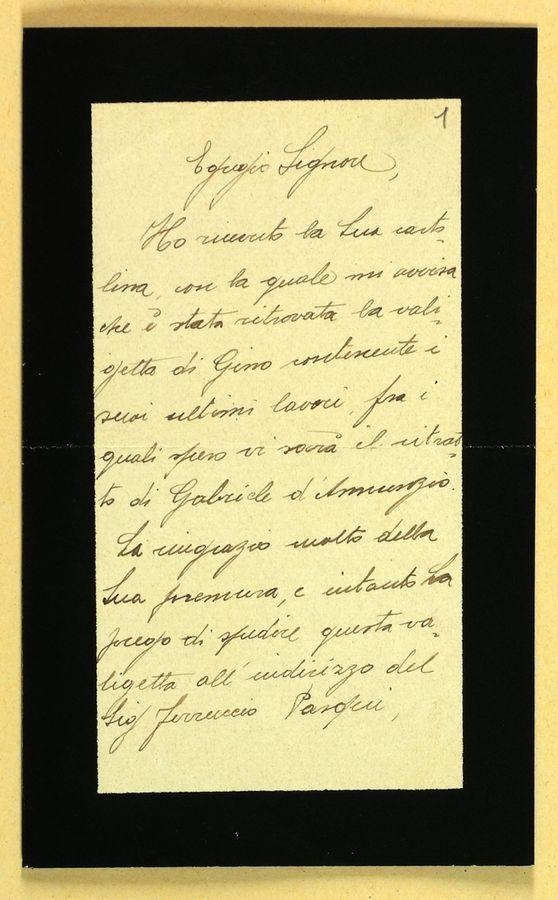 1
Egregio Signore,
Ho ricevuto la Sua carto-
lina, con la quale mi avvisa
che è stata ritrovata la vali-
getta di Gino contenente i
suoi ultimi lavori, fra i
quali spero vi sarà il ritrat-
to di Gabriele d'Annunzio.
La ringrazio molto della
Sua premura, e intanto La
prego di spedire questa va-
ligetta all'indirizzo del
Sig Ferruccio Pasqui,